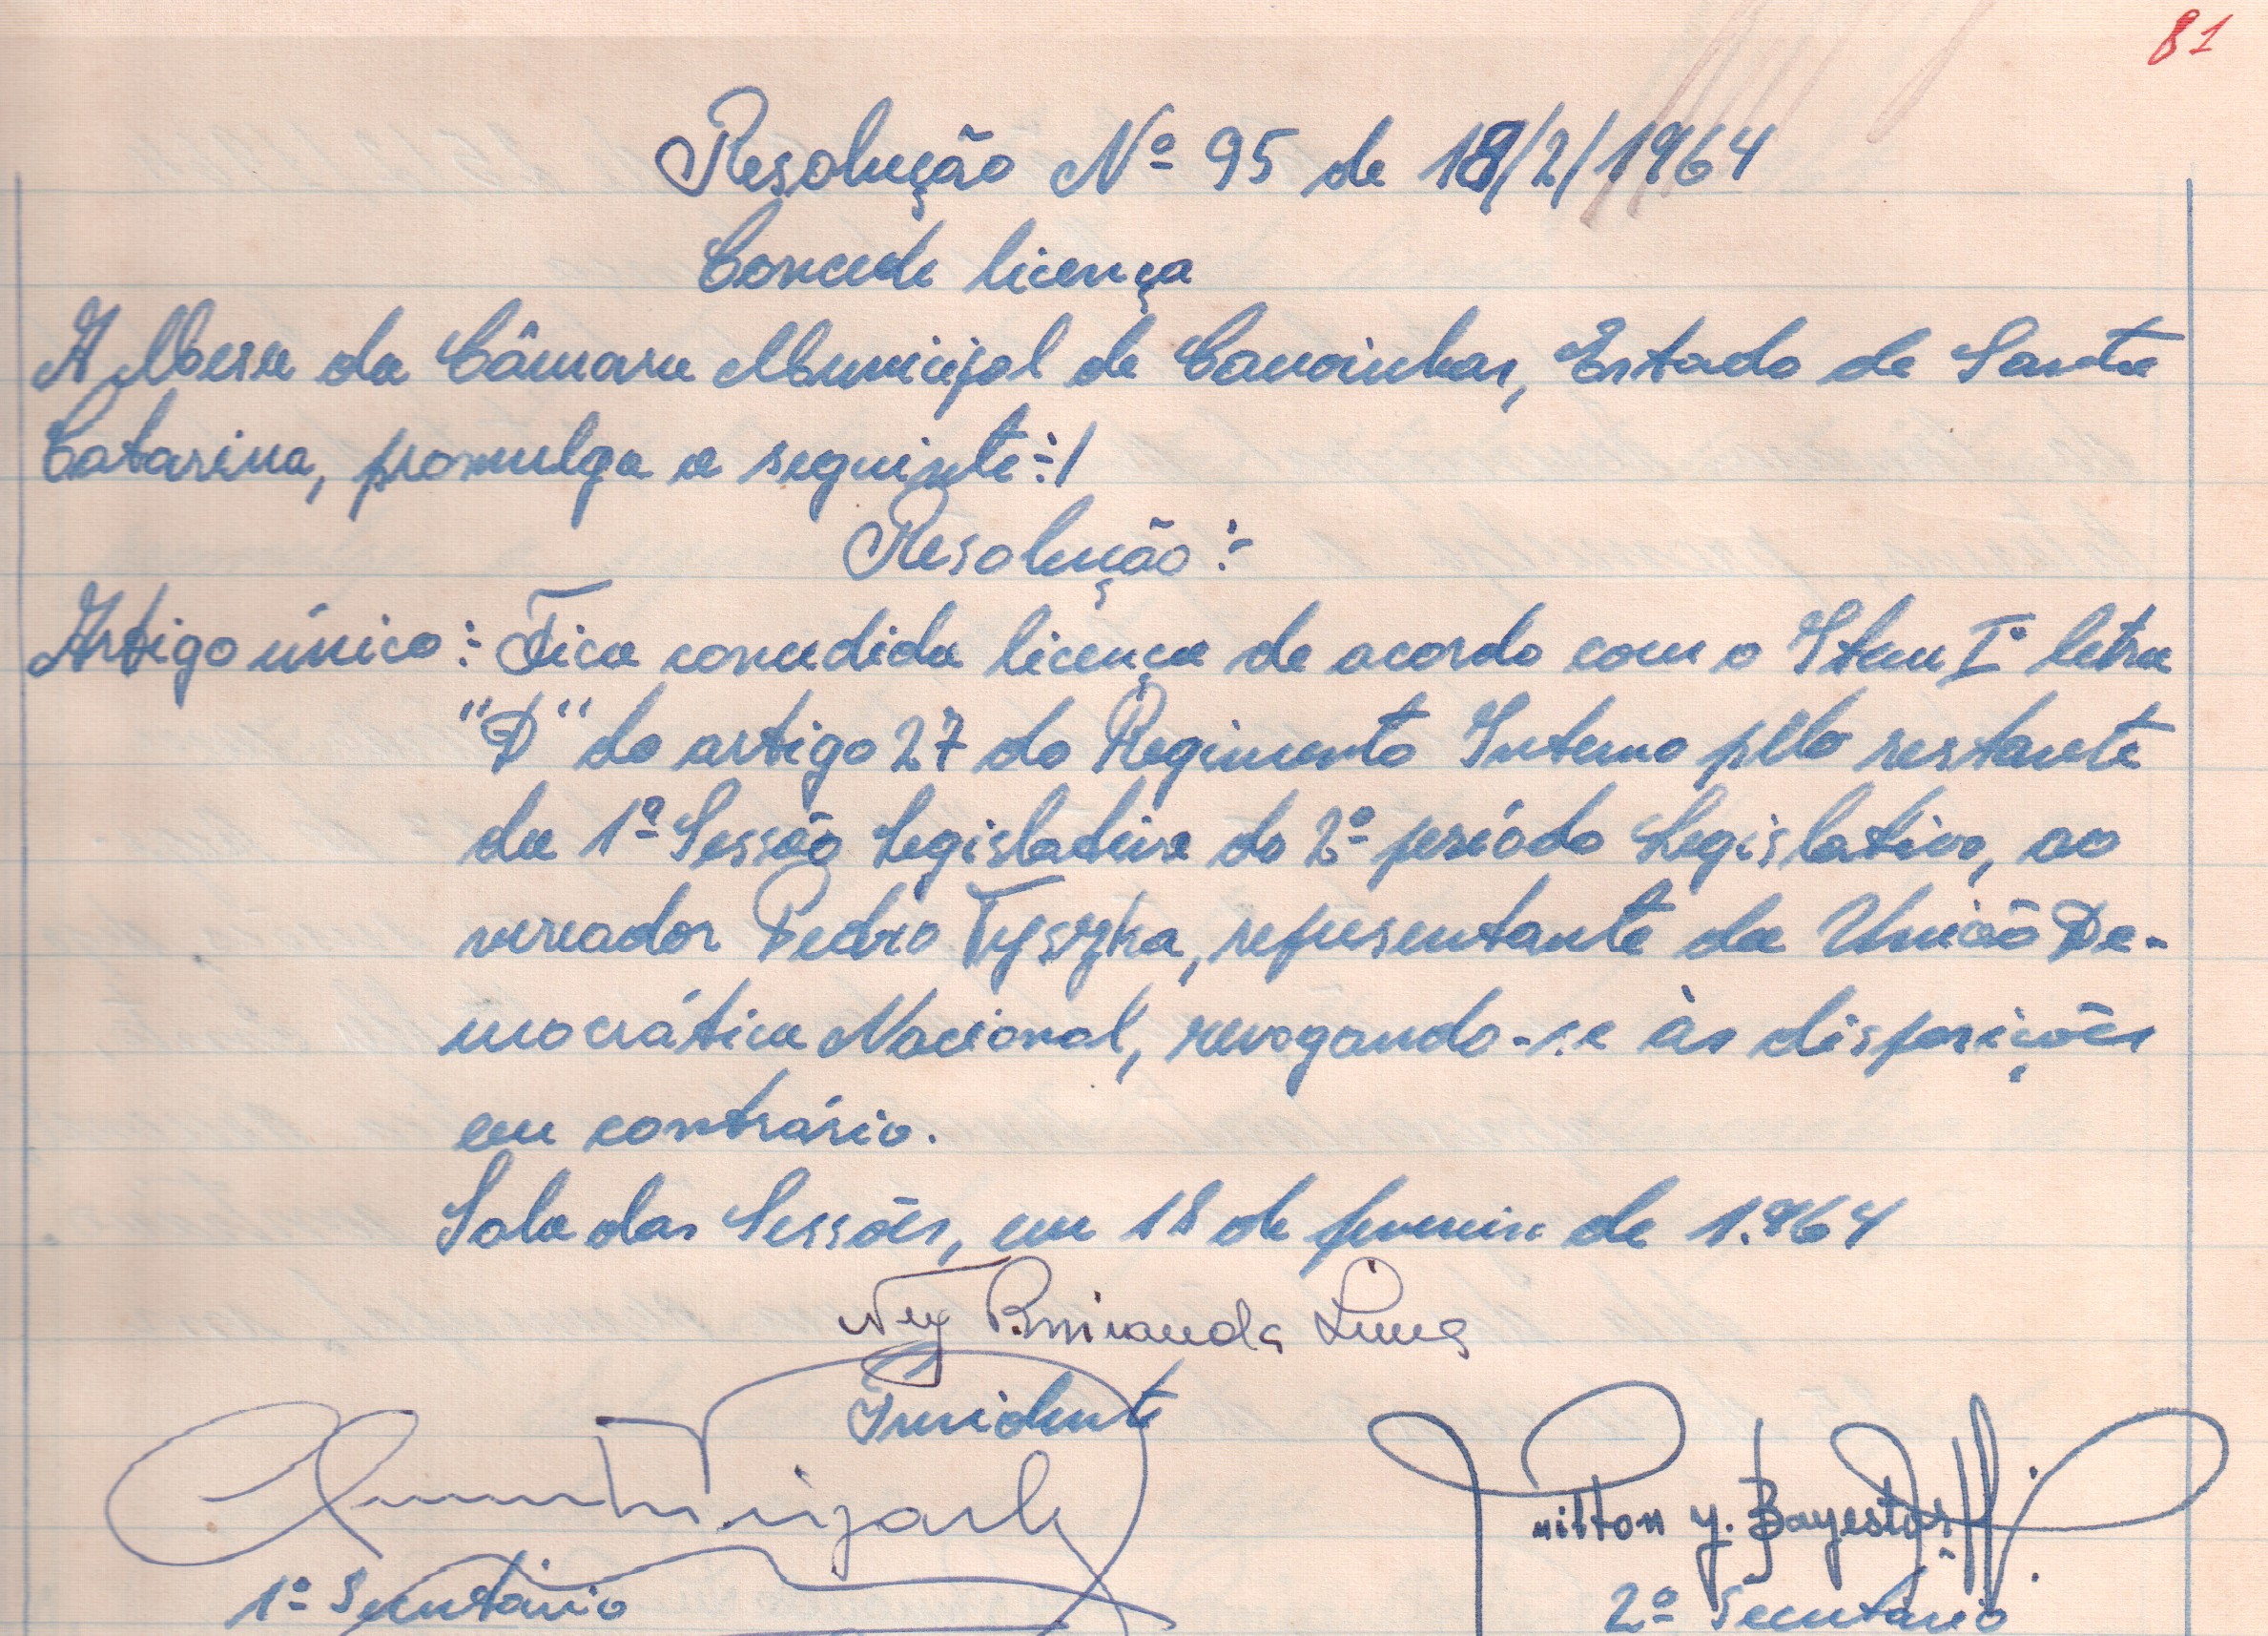 81
Resolução Nº 95 de 18/2/1964
Concede licença
A Mesa da Câmara Municipal de Canoinhas, Estado de Santa
Catarina, promulga a seguinte:-/
Resolução:-
Artigo único:- Fica concedida licença de acordo com o Item Iº letra
"D" do artigo 27 do Regimento Interno pelo restante
da 1ª Sessão Legislativa do 2º período Legislativo, ao
vereador Pedro Tyszka, representante da União De-
mocrática Nacional, revogando-se às disposições
em contrário.
Sala das Sessões, em 18 de fevereiro de 1.964
Ney P. Miranda Lima
Presidente
Milton Y. Bayestorff
1º Secretário
2º Secretário